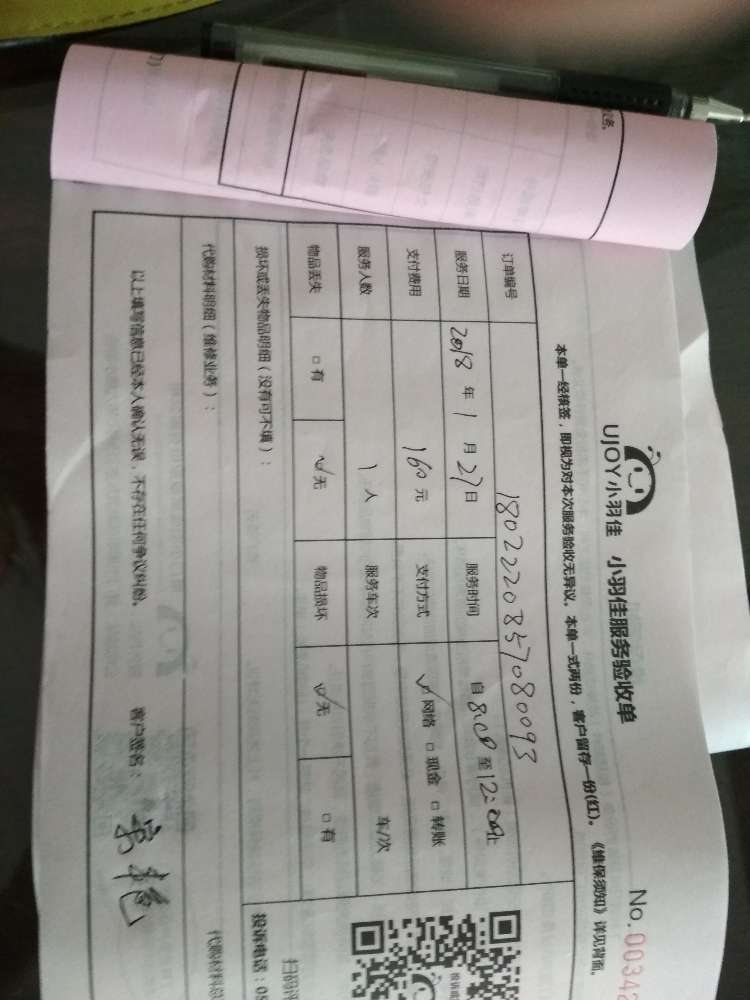 UJOY小羽佳 小羽佳服务验收单
No.0034
本单一经核签，即视为对本次服务验收无异议。本单一式两份，客户留存一份(红)。《维保须知》详见背面。
订单编号 1802220857080093
服务日期 2018年1月27日 服务时间 自8:00至12:00止
支付费用 160元 支付方式 ☑网络 □现金 □转账
服务人数 1人 服务车次 车/次
物品丢失 □有 ☑无 物品损坏 ☑无 □有
损坏或丢失物品明细（没有可不填）：
代购材料明细（维修业务）： 代购材料总
以上填写信息已经本人确认无误，不存在任何争议纠纷。 客户签名：
扫码评
投诉电话：05